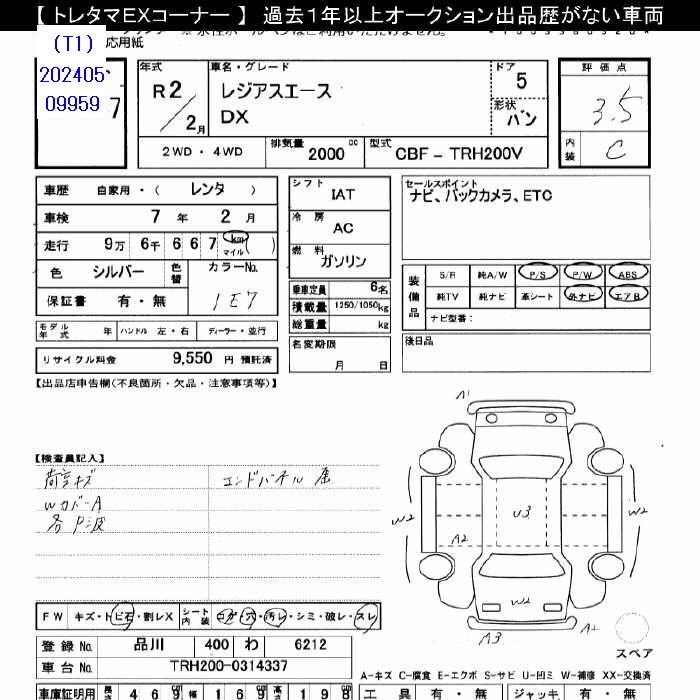 【トレタマEXコーナー】 過去1年以上オークション出品歴がない車両
応用紙
(T1)
202405
09959
7
年式 R2 / 2月
車名・グレード
レジアスエース
DX
ドア 5
形状 バン
2WD・4WD
排気量 2000 cc
型式 CBF－TRH200V
評価点 3.5
内装 C
車歴 自家用・( レンタ )
車検 7年 2月
走行 9万 6千 6 6 7 km マイル ( )
色 シルバー 色替 カラーNo. 1E7
保証書 有・無
モデル年式 年 ハンドル 左・右 ディーラー・並行
リサイクル料金 9,550 円 預託済
シフト IAT
冷房 AC
燃料 ガソリン
乗車定員 6名
積載量 1250/1050kg
総重量 kg
名変期限 月 日
セールスポイント
ナビ、バックカメラ、ETC
装備品
S/R 純A/W P/S P/W ABS
純TV 純ナビ 革シート 外ナビ エアB
ナビ型番：
後日品
【出品店申告欄(不良箇所・欠品・注意事項等)】
【検査員記入】
エンドパネル
WカバーA
各P波
A1
W2
U3
W2
A2
W2
A3
A2
スペア
FW キズ・ト ビ石・割レX シート内装 コゲ・穴・汚レ・シミ・破レ・スレ
登録No. 品川 400 わ 6212
車台No. TRH200-0314337
A－キズ C－腐食 E－エクボ S－サビ U－凹ミ W－補修 XX－交換済
車庫証明用 長さ 469 幅 169 高さ 198
工具 有・無 ジャッキ 有・無